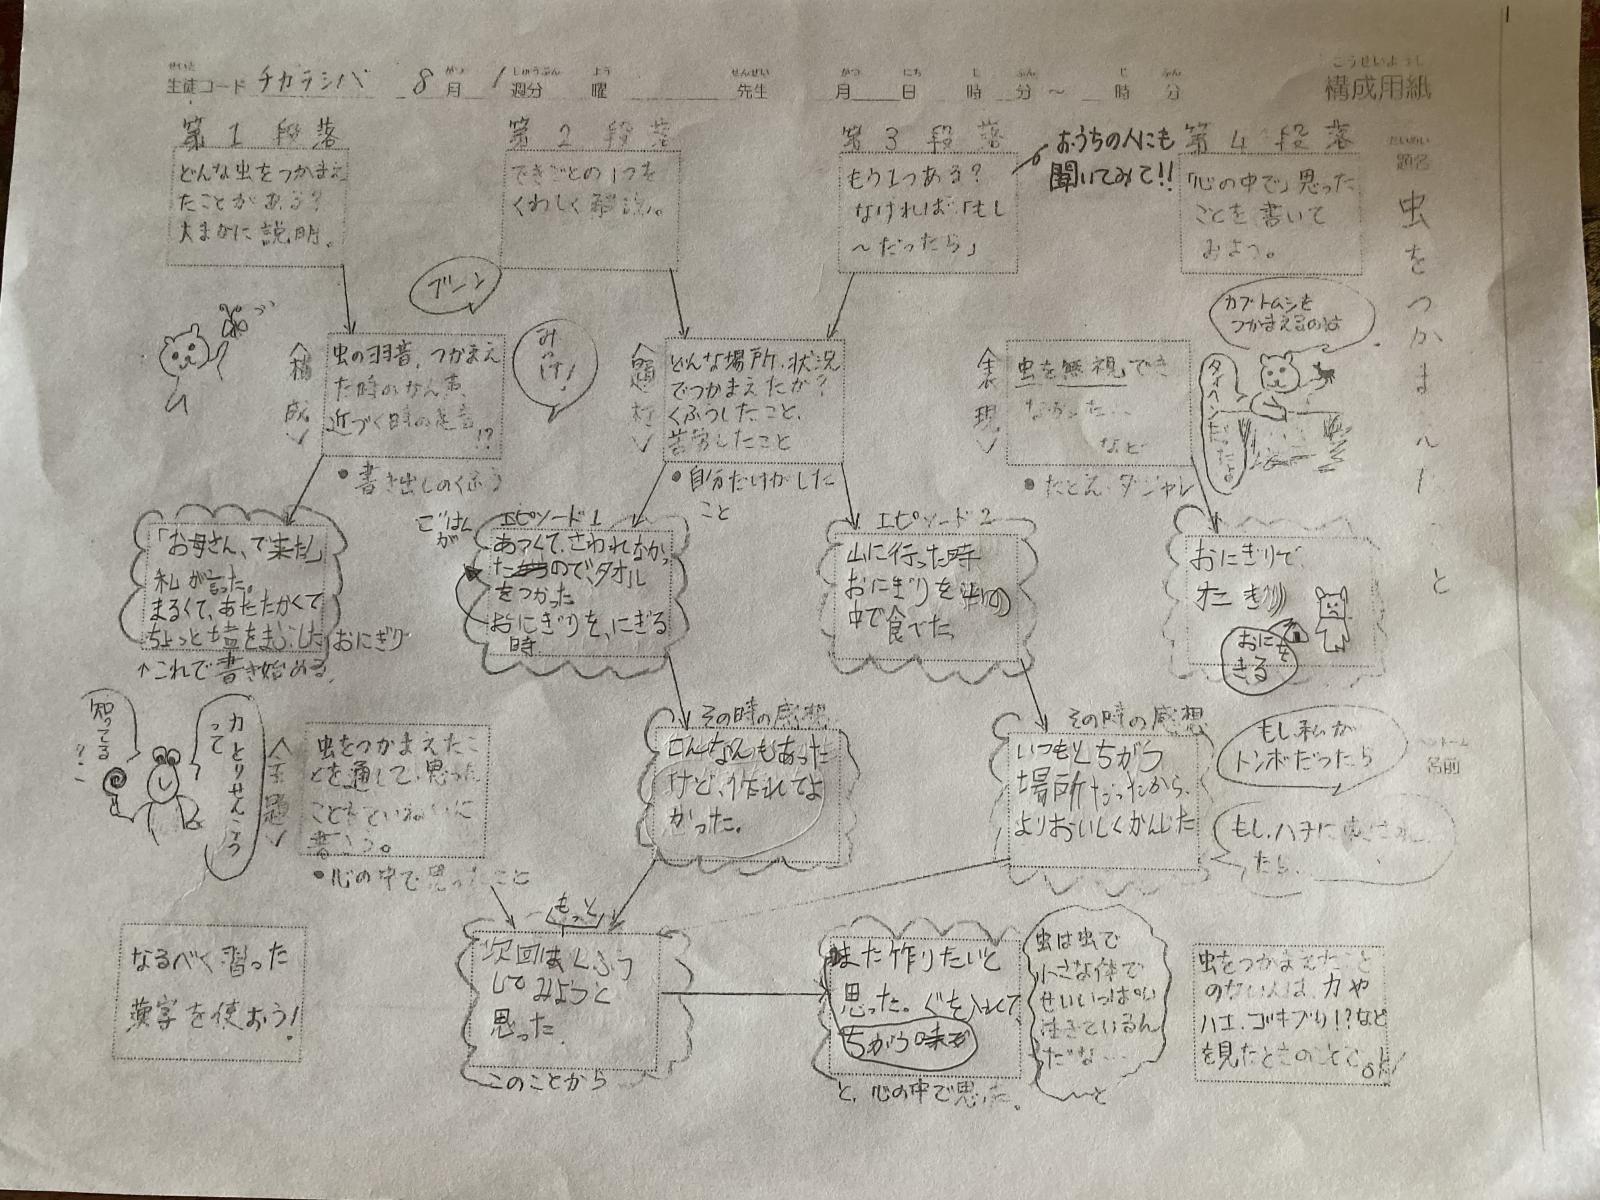 せいと
生徒コード チカラシバ 8月 1週分 曜 先生 月 日 時 分 ～ 時 分
こうせいようし
構成用紙
だいめい
題名
虫をつかまえたこと
名前
第1段落
どんな虫をつかまえ
たことがある？
大まかに説明。
第2段落
できごとの1つを
くわしく解説。
第3段落
もう1つある？
なければ「もし
～だったら」
おうちの人にも
聞いてみて!!
第4段落
「心の中で」思った
ことを書いて
みよう。
ブーン
みっけ！
カブトムシを
つかまえるのは
タイヘンだったよ
＜構成＞
虫の羽音、つかまえ
た時のかん声、
近づく時の足音
!?
・書き出しのくふう
＜題材＞
どんな場所、状況
でつかまえたか？
くふうしたこと、
苦労したこと
・自分だけがした
こと
＜表現＞
虫を無視でき
なかった…
など
・たとえ、ダジャレ
「お母さん、で来た!」
私が言った。
まるくて、あたたかくて
ちょっと塩をまぶしたおにぎり
↑これで書き始める。
エピソード1
ごはんが
あつくて、さわれなかっ
たので、タオル
をつかった
おにぎりを、にぎる
時
エピソード2
山に行った時
おにぎりを
中で食べた
おにぎりで、
オニぎり
おにを
きる
知ってる？
カとりせんこうって
＜主題＞
虫をつかまえたこ
とを通して、思った
ことをていねいに
書こう。
・心の中で思ったこと
その時の感想
こんなんもあった
けど、作れてよ
かった。
その時の感想
いつもとちがう
場所だったから、
よりおいしくかんじた
もし私が
トンボだったら
もし、ハチにさされ
たら、
なるべく習った
漢字を使おう！
もっと
次回はくふう
してみようと
思った。
このことから
また作りたいと
思った。ぐを入れて、
ちがう味で
と、心の中で思った。
虫は虫で
小さな体で
せいいっぱい
生きているん
だな…
～と
虫をつかまえたこと
のない人は、カや
ハエ、ゴキブリ!?など
を見たときのことでOK!